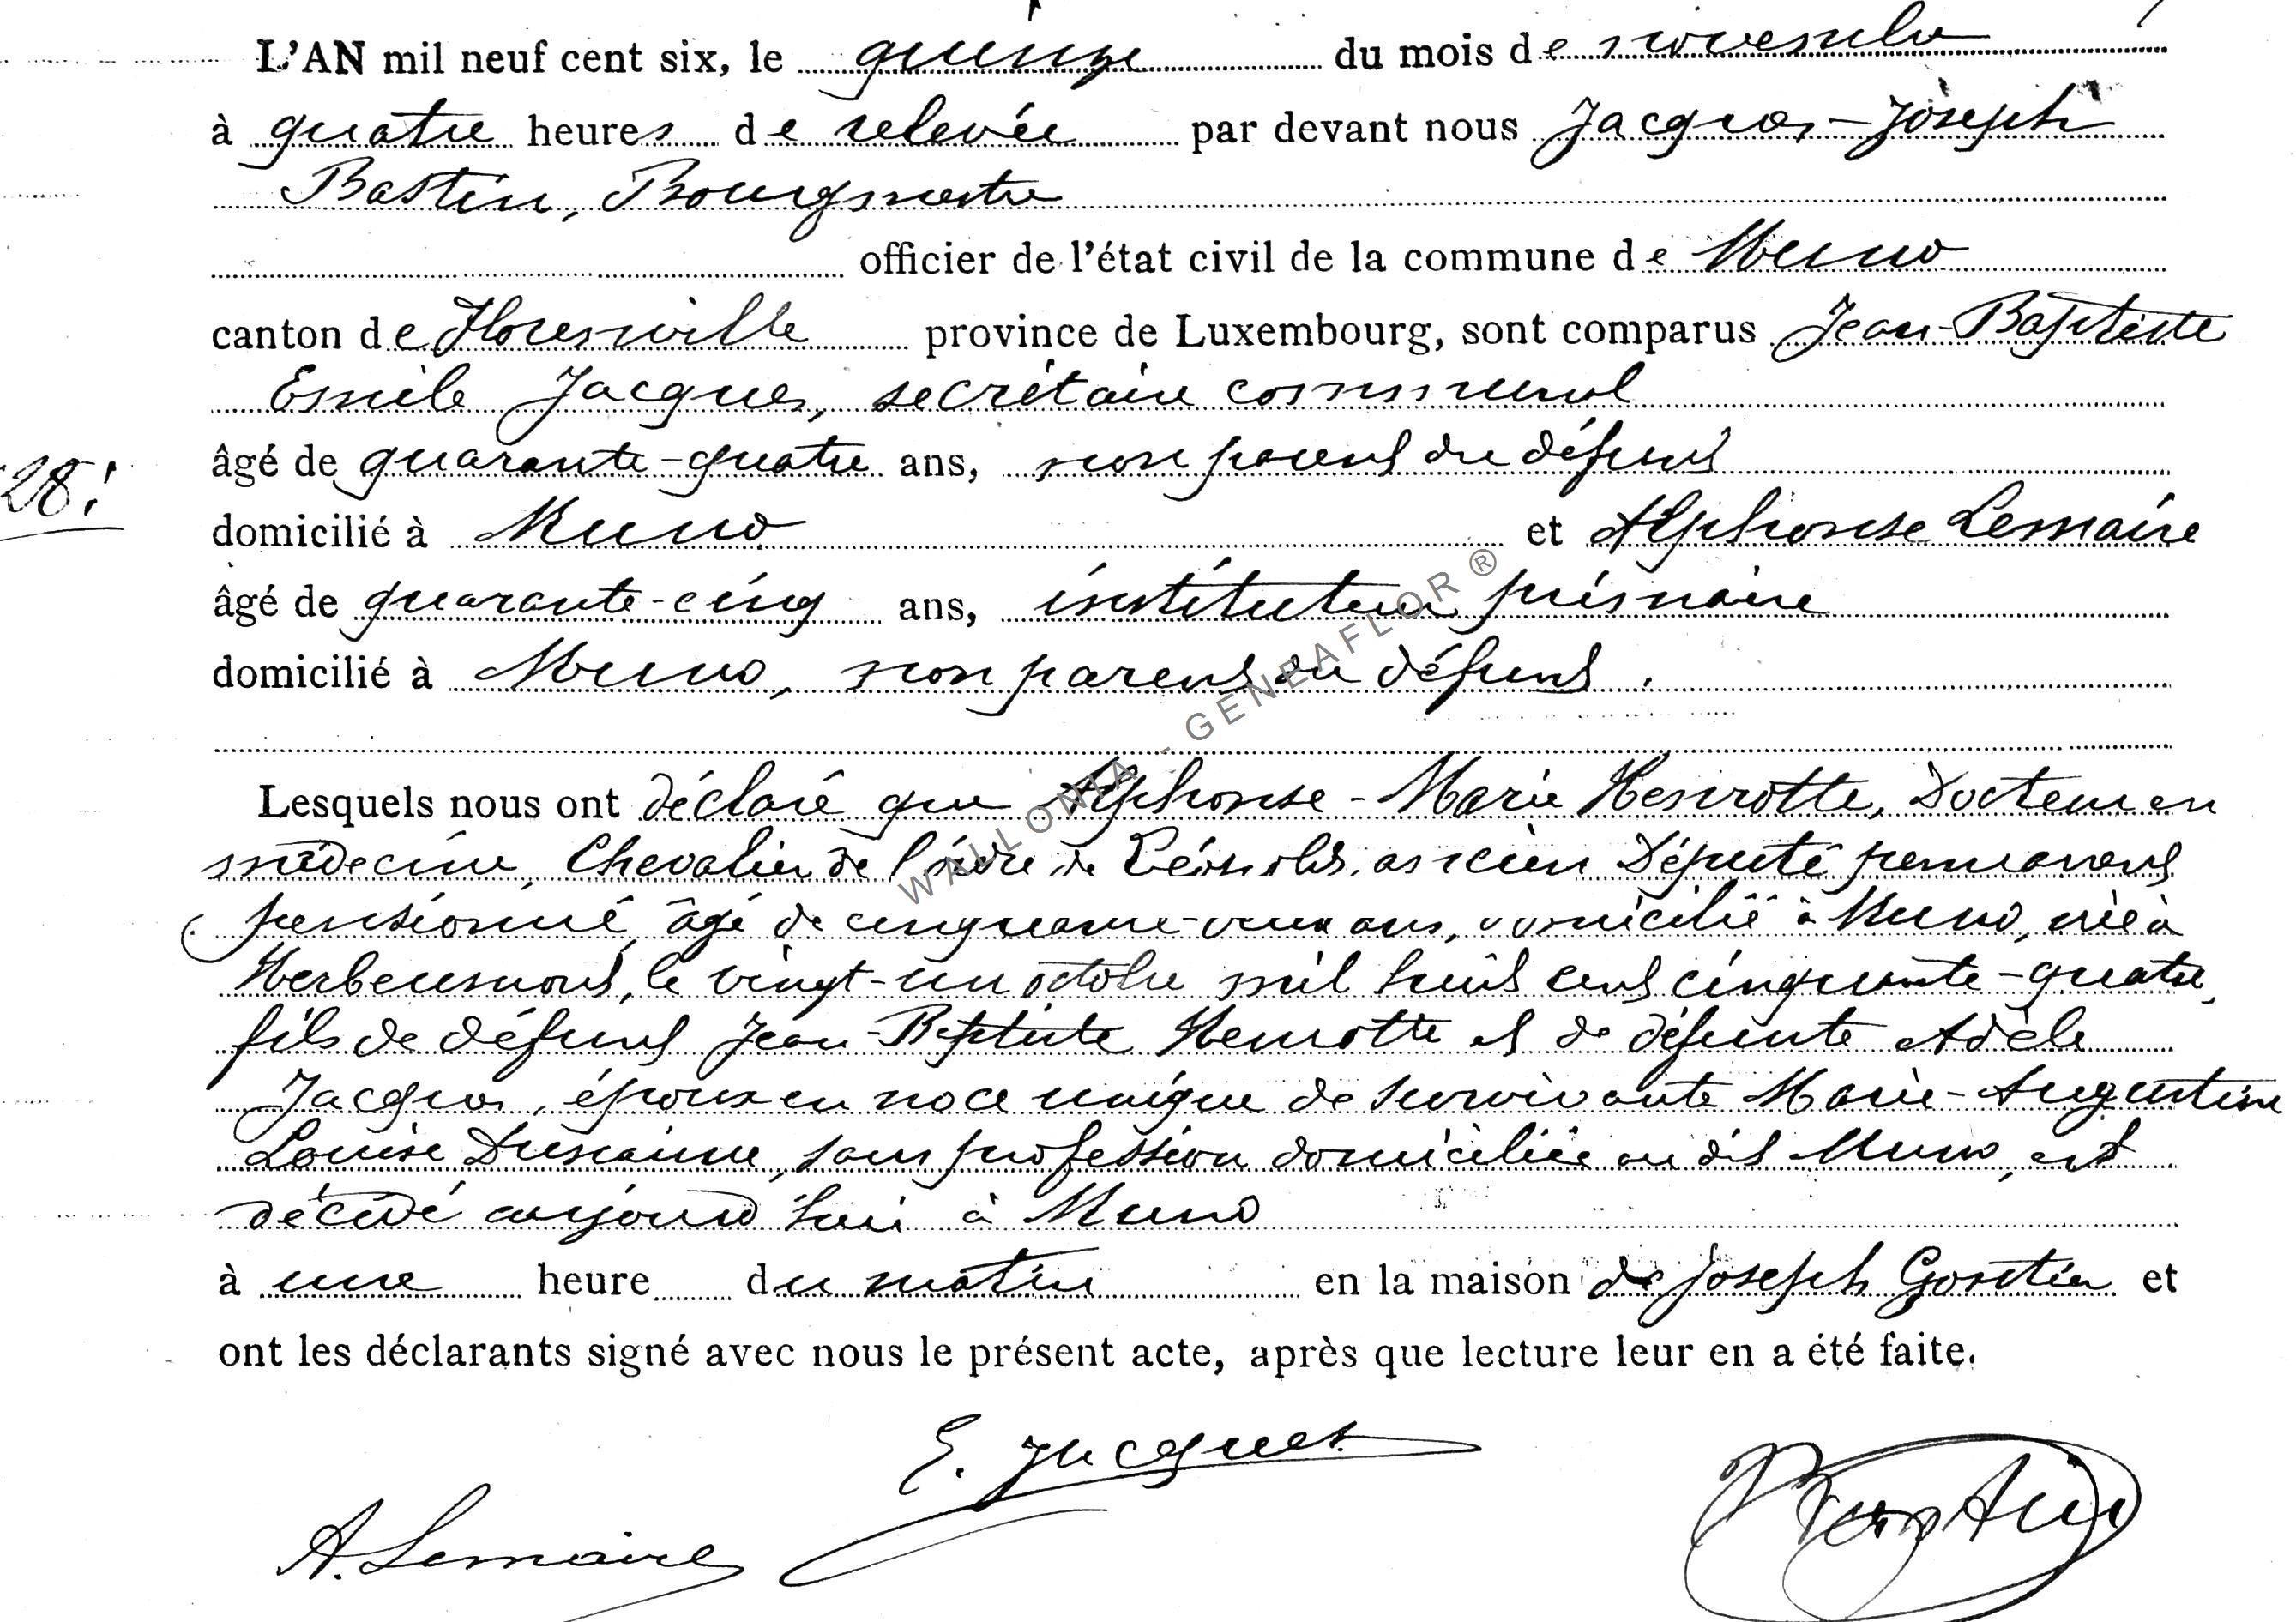 L'AN mil neuf cent six, le quinze du mois de novembre
à quatre heures de relevée par devant nous Jacques-Joseph
Bastin, Bourgmestre
officier de l'état civil de la commune de Muno
canton de Florenville province de Luxembourg, sont comparus Jean-Baptiste
Emile Jacques, secrétaire communal
âgé de quarante-quatre ans, non parent du défunt
28.
domicilié à Muno et Alphonse Lemaire
âgé de quarante-cinq ans, instituteur primaire
domicilié à Muno, non parent du défunt.
WALLONIA - GENEAFLOR ®
Lesquels nous ont déclaré que Alphonse-Marie Henrotte, Docteur en
médecine, Chevalier de l'ordre de Léopold, ancien Député permanent
pensionné, âgé de cinquante-deux ans, domicilié à Muno, né à
Herbeumont, le vingt-un octobre mil huit cent cinquante-quatre,
fils de défunt Jean-Baptiste Henrotte et de défunte Adèle
Jacques, époux en noce unique de survivante Marie-Augustine
Louise, sans profession domiciliée au dit Muno, est
décédé aujourd'hui à Muno
à une heure du matin en la maison de Joseph et
ont les déclarants signé avec nous le présent acte, après que lecture leur en a été faite.
E. Jacques
A. Lemaire
Bastin